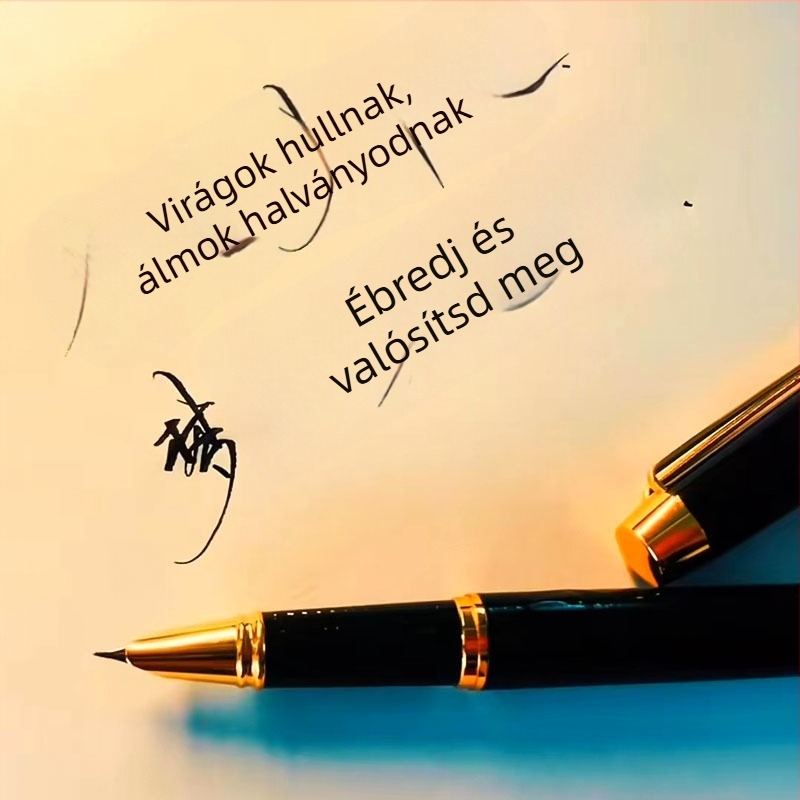 Virágok hullnak,
álmok halványodnak
Ébredj és
valósítsd meg